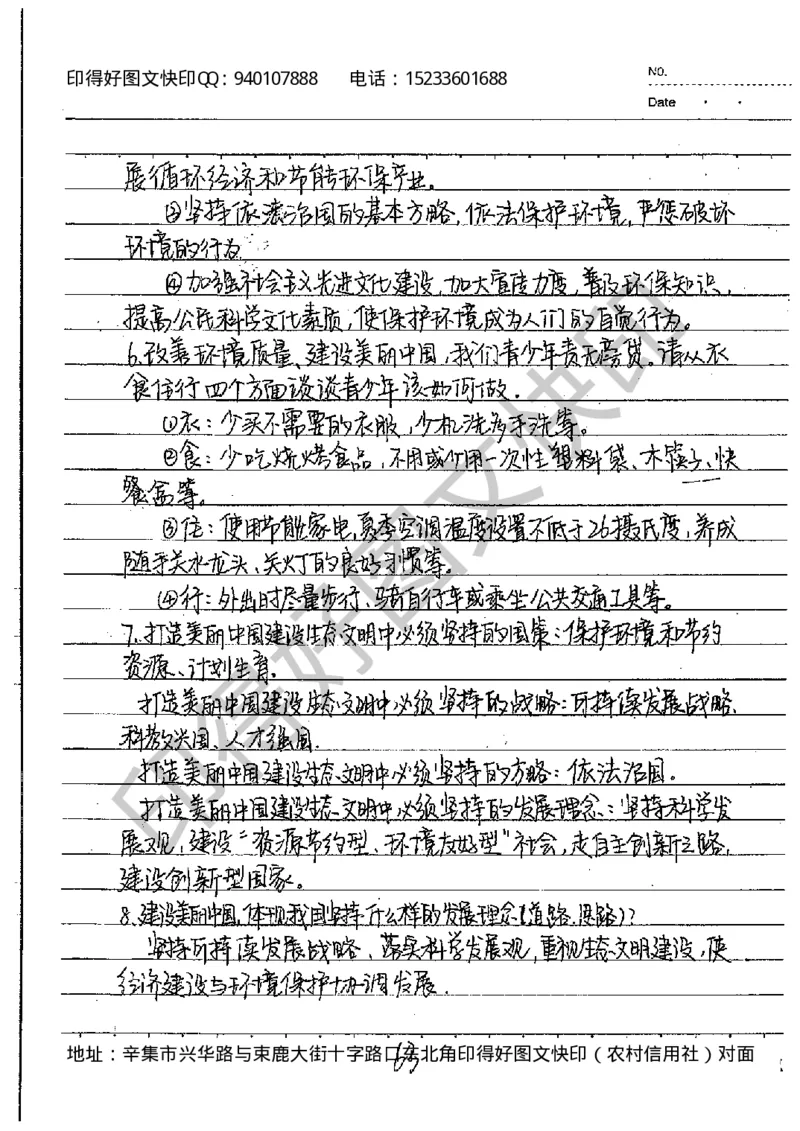 印得好图文快印QQ：940107888 电话：15233601688
NO.
Date
展循环经济和节能环保产业。
③坚持依法治国的基本方略，依法保护环境，严惩破坏
环境的行为
④加强社会主义先进文化建设，加大宣传力度，普及环保知识，
提高公民科学文化素质，使保护环境成为人们的自觉行为。
6.改善环境质量、建设美丽中国，我们青少年责无旁贷。请从衣
食住行四个方面谈谈青少年该如何做.
①衣：少买不需要的衣服，少机洗多手洗等。
②食：少吃烧烤食品，不用或少用一次性塑料袋、木筷子、快
餐盒等。
③住：使用节能家电，夏季空调温度设置不低于26摄氏度，养成
随手关水龙头、关灯的良好习惯等。
④行：外出时尽量步行、骑自行车或乘坐公共交通工具等。
7.打造美丽中国建设生态文明中必须坚持的国策：保护环境和节约
资源、计划生育.
打造美丽中国建设生态文明中必须坚持的战略：可持续发展战略、
科教兴国、人才强国.
打造美丽中国建设生态文明中必须坚持的方略：依法治国。
打造美丽中国建设生态文明中必须坚持的发展理念：坚持科学发
展观，建设“资源节约型、环境友好型”社会，走自主创新之路，
建设创新型国家。
8.建设美丽中国，体现我国坚持什么样的发展理念（道路.思路）？
坚持可持续发展战略、落实科学发展观，重视生态文明建设，使
经济建设与环境保护协调发展.
地址：辛集市兴华路与束鹿大街十字路口东北角印得好图文快印（农村信用社）对面
印得好图文快印